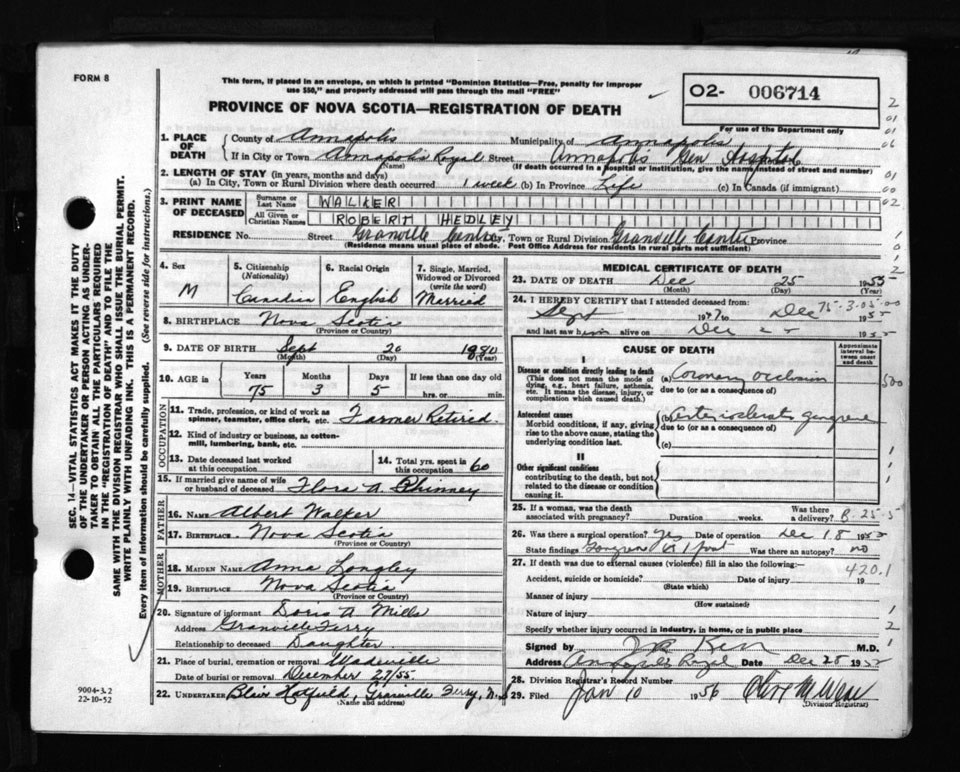 FORM 8
This form, if placed in an envelope, on which is printed "Dominion Statistics—Free, penalty for improper
use $50," and properly addressed will pass through the mail "FREE"
PROVINCE OF NOVA SCOTIA—REGISTRATION OF DEATH
O2- 006714
For use of the Department only
1. PLACE OF DEATH County of Annapolis Municipality of Annapolis
If in City or Town Annapolis Royal Street Annapolis Gen Hospital
(Name) (If death occurred in a hospital or institution, give the name instead of street and number)
2. LENGTH OF STAY (in years, months and days)
(a) In City, Town or Rural Division where death occurred 1 week (b) In Province Life (c) In Canada (if immigrant)
3. PRINT NAME OF DECEASED Surname or Last Name WALKER
All Given or Christian Names ROBERT HEDLEY
RESIDENCE No. Street Granville Centre City, Town or Rural Division Granville Centre Province
(Residence means usual place of abode. Post Office Address for residents in rural parts not sufficient)
4. Sex M
5. Citizenship (Nationality) Canadian
6. Racial Origin English
7. Single, Married, Widowed or Divorced (write the word) Married
8. BIRTHPLACE Nova Scotia
(Province or Country)
9. DATE OF BIRTH Sept 20 1880
(Month) (Day) (Year)
10. AGE in Years 75 Months 3 Days 5 If less than one day old hrs. or min.
OCCUPATION
11. Trade, profession, or kind of work as spinner, teamster, office clerk, etc. Farmer Retired
12. Kind of industry or business, as cotton-mill, lumbering, bank, etc.
13. Date deceased last worked at this occupation
14. Total yrs. spent in this occupation 60
15. If married give name of wife or husband of deceased Flora A. Phinney
FATHER
16. NAME Albert Walker
17. BIRTHPLACE Nova Scotia
(Province or Country)
MOTHER
18. MAIDEN NAME Anna Longley
19. BIRTHPLACE Nova Scotia
(Province or Country)
20. Signature of informant Doris A Mills
Address Granville Ferry
Relationship to deceased Daughter
21. Place of burial, cremation or removal Wadeville
Date of burial or removal December 27/55
22. UNDERTAKER Blair Hatfield, Granville Ferry, N.S.
(Name and address)
MEDICAL CERTIFICATE OF DEATH
23. DATE OF DEATH Dec 25 1955
(Month) (Day)
24. I HEREBY CERTIFY that I attended deceased from:
Sept 1947 to Dec 1955
75-3-05-00
and last saw him alive on Dec 1955
CAUSE OF DEATH
Approximate interval between onset and death
I
Disease or condition directly leading to death
(This does not mean the mode of dying, e.g., heart failure, asthenia, etc. It means the disease, injury, or complication which caused death.)
(a) Coronary Occlusion
due to (or as a consequence of)
520
Antecedent causes
Morbid conditions, if any, giving rise to the above cause, stating the underlying condition last.
(b) Arteriosclerotic gangrene
due to (or as a consequence of)
(c)
II
Other significant conditions contributing to the death, but not related to the disease or condition causing it.
25. If a woman, was the death associated with pregnancy? Duration weeks. Was there a delivery? B-25-5
26. Was there a surgical operation? Yes Date of operation Dec 18 1955
State findings Gangrene 1 foot Was there an autopsy? no
27. If death was due to external causes (violence) fill in also the following:— 420.1
Accident, suicide or homicide? Date of injury 19
(State which)
Manner of injury
(How sustained)
Nature of injury
Specify whether injury occurred in industry, in home, or in public place
Signed by M.D.
Address Annapolis Royal Date Dec 28 1955
28. Division Registrar's Record Number
29. Filed Jan 10 1956
Division Registrar
SEC. 14—VITAL STATISTICS ACT MAKES IT THE DUTY
OF THE UNDERTAKER OR PERSON ACTING AS UNDER-
TAKER TO OBTAIN ALL THE PARTICULARS REQUIRED
IN THE "REGISTRATION OF DEATH" AND TO FILE THE
SAME WITH THE DIVISION REGISTRAR WHO SHALL ISSUE THE BURIAL PERMIT.
WRITE PLAINLY WITH UNFADING INK. THIS IS A PERMANENT RECORD.
Every item of information should be carefully supplied. (See reverse side for instructions.)
9004-3.2
22-10-52